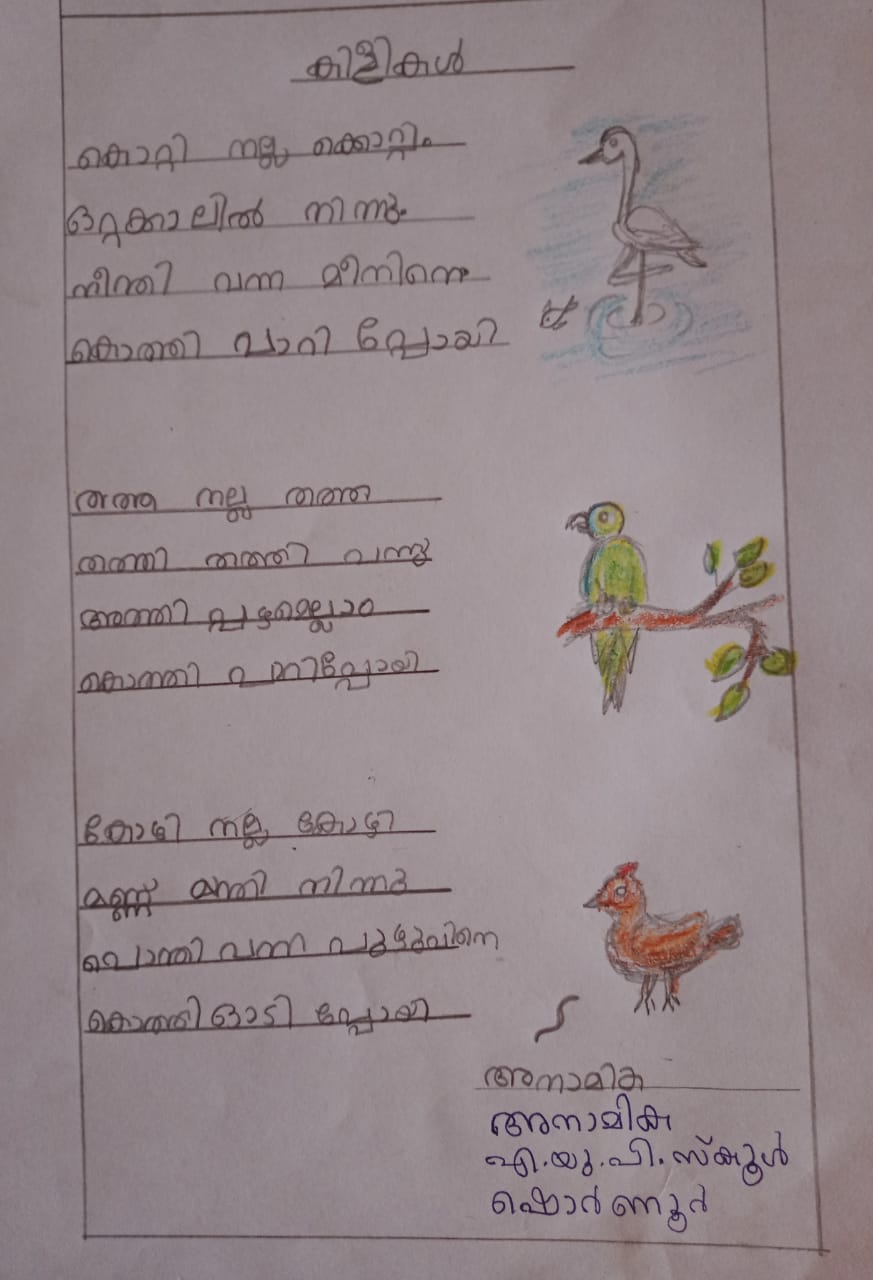 കിളികൾ
കൊറ്റി നല്ല കൊറ്റി
ഒറ്റക്കാലിൽ നിന്നു
നീന്തി വന്ന മീനിനെ
കൊത്തി പാറി പ്പോയി
തത്ത നല്ല തത്ത
തത്തി തത്തി വന്നു
അത്തി പ്പഴമെല്ലാം
കൊത്തി പാറിപ്പോയി
കോഴി നല്ല കോഴി
മണ്ണ് മാന്തി നിന്നു
പൊന്തി വന്ന പുഴുവിനെ
കൊത്തി ഓടി പ്പോയി
അനാമിക
അനാമിക
എ.യു.പി.സ്കൂൾ
ഷൊർണൂർ